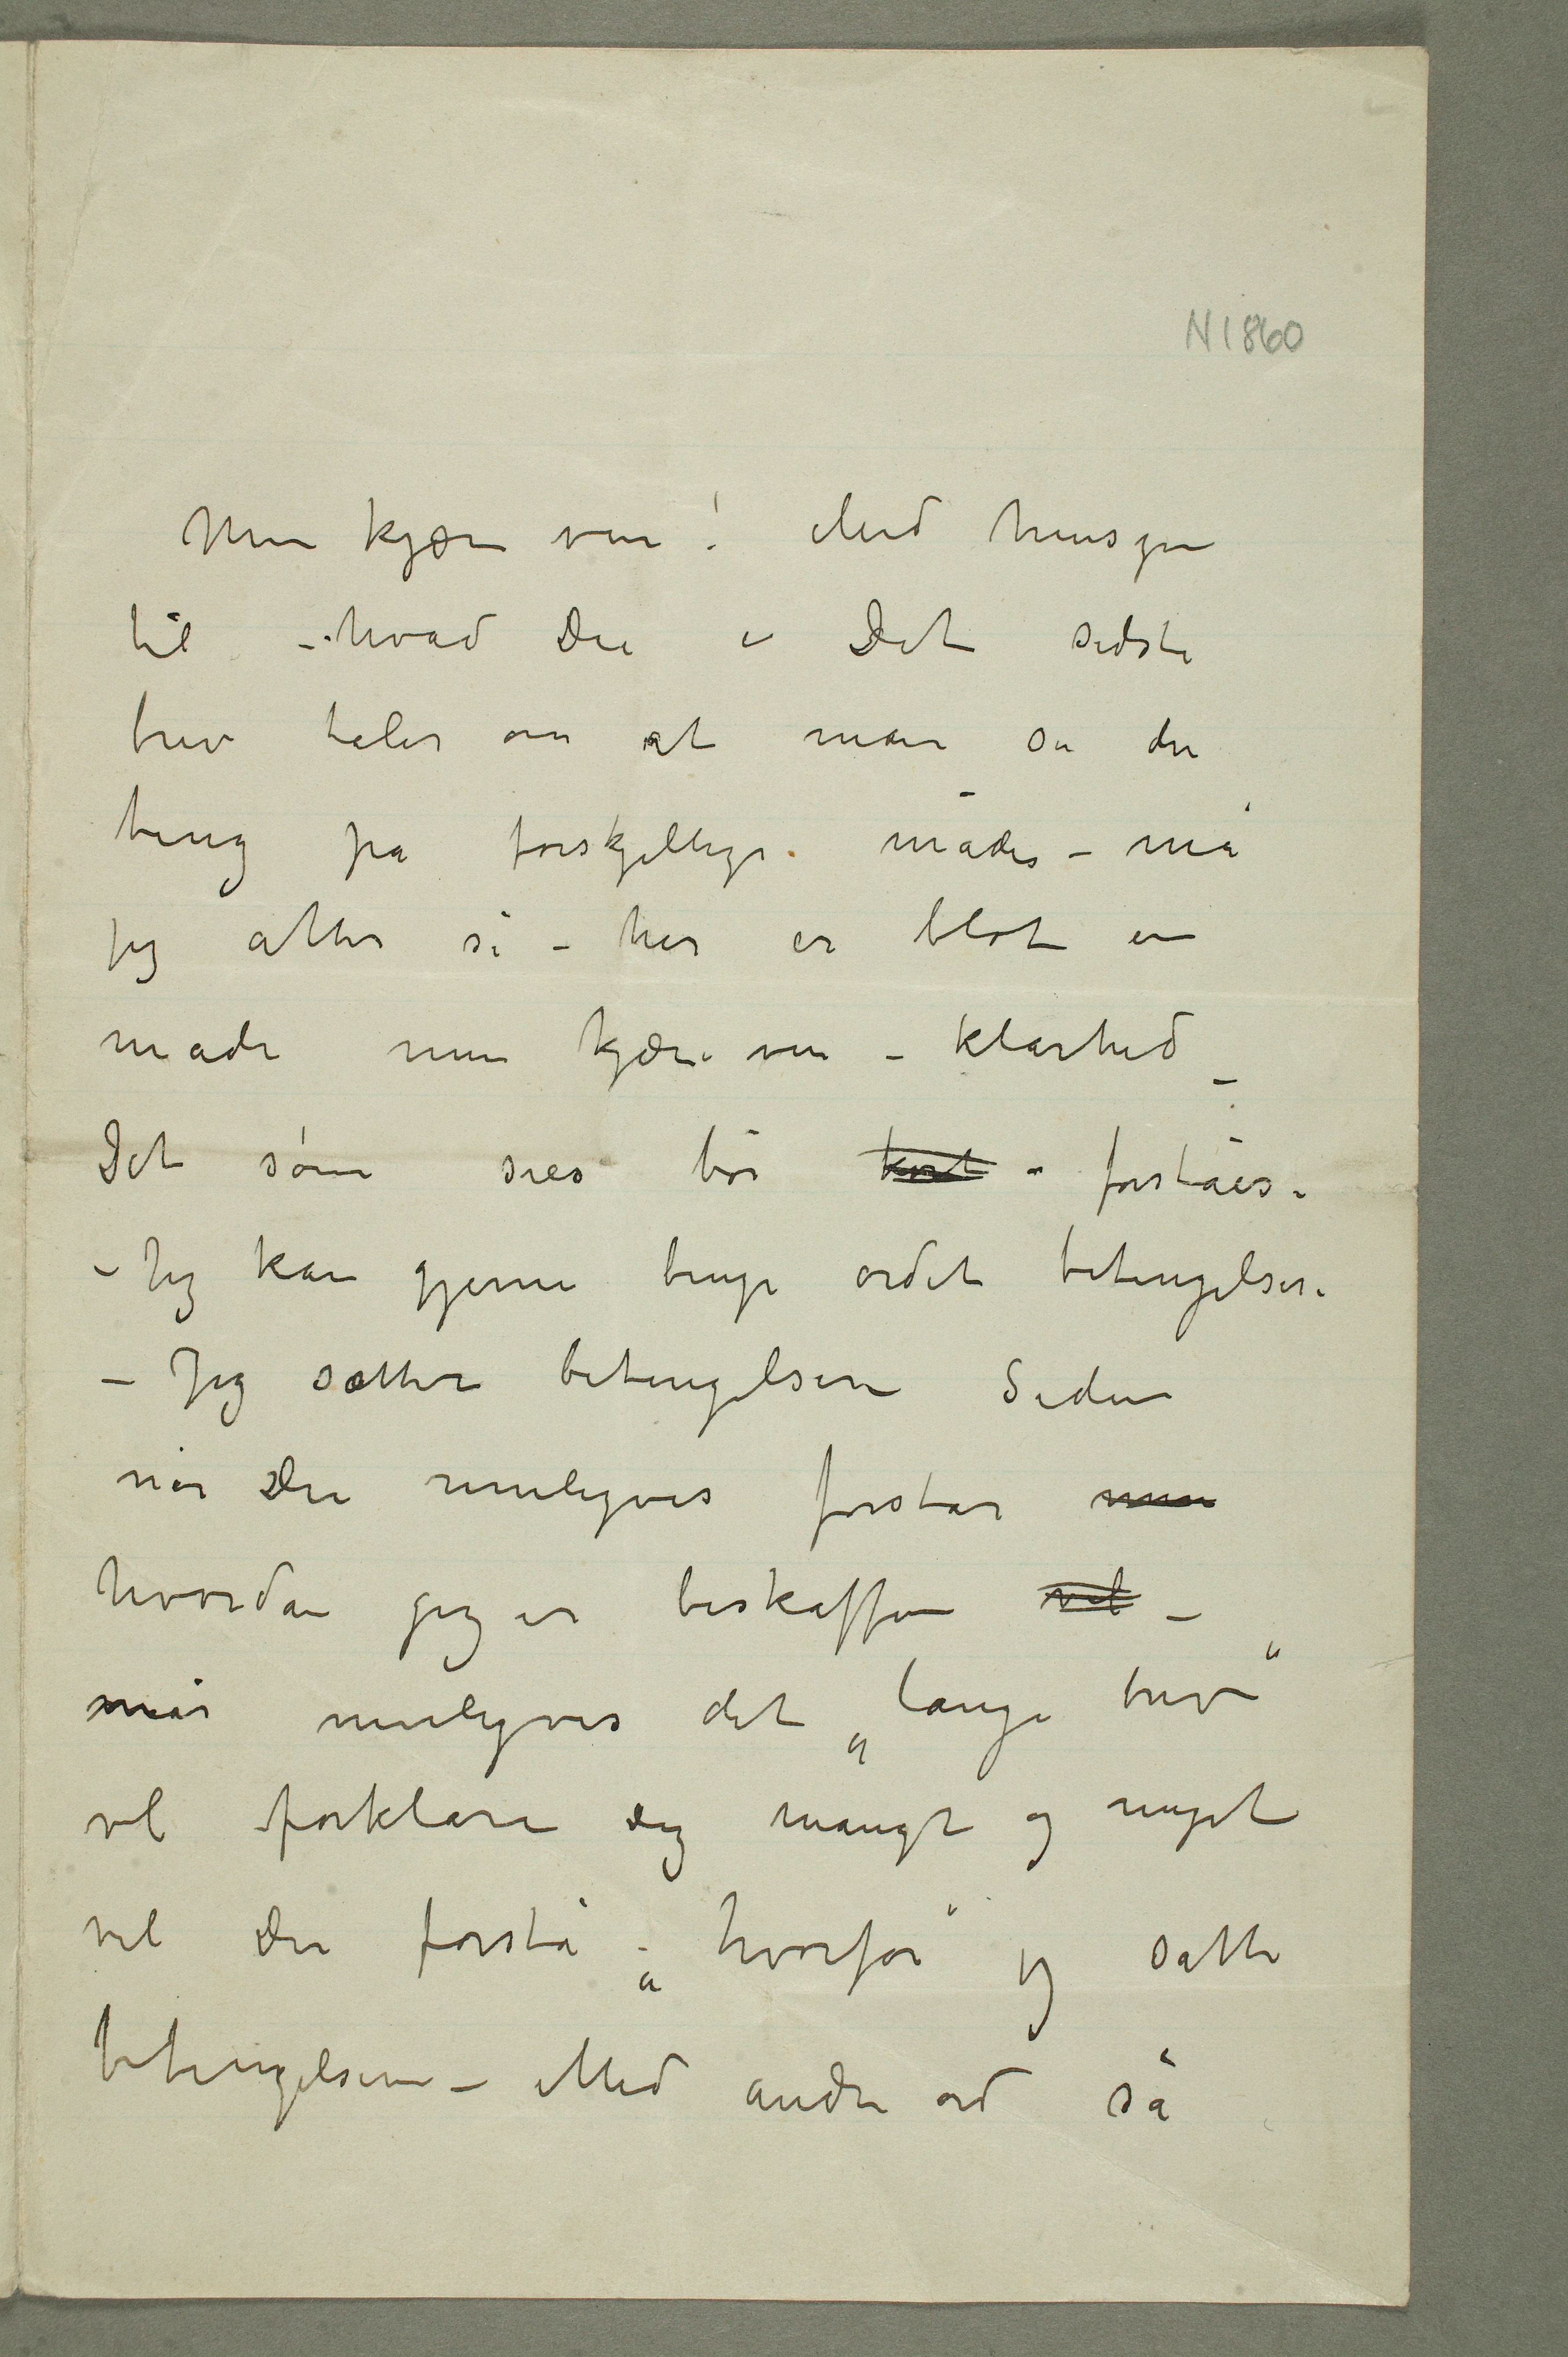 N 1860
Min kjære ven! Med hensyn
til – hvad Du i Dit sidste
brev taler om at man sa en
ting på forskjellige måder – må
jeg atter si – her er blot en
måde min kjære ven – klarhed –
Det som sies bør kort – forståes.
– Jeg kan gjerne bruge ordet betingelser.
– Jeg sætter betingelsen Siden
når Du muligvis forstår min
hvordan jeg er beskaffen vil –
når muligvis det „lange brev“
vil forklare Dig mangt og meget
vil Du forstå „hvorfor“ jeg satte
betingelsen – Med andre ord så